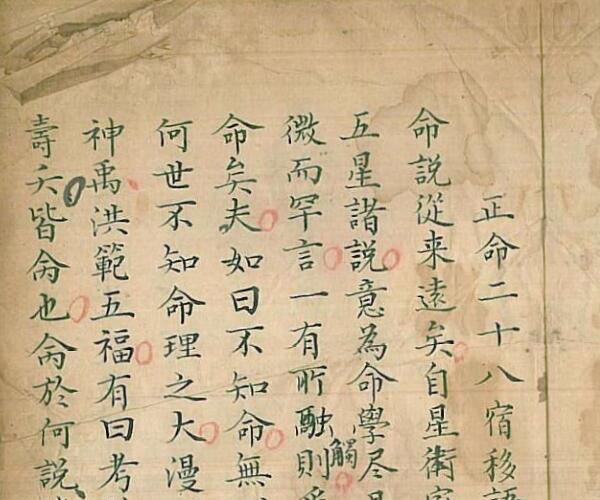 正命二十八宿移
命說從来遠矣自星術
五星諸說意為命學尽
微而罕言一有所融則
觸
命矣夫如曰不知命無
何世不知命理之大漫
神禹洪範五福有曰考
壽夭皆侖也侖於何説